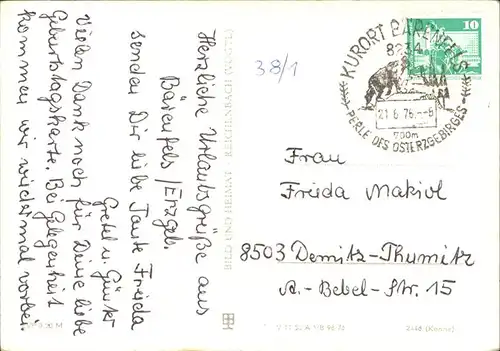 Herzliche Urlaubsgrüße aus
Bärenfels / Erzgeb.
senden Dir liebe Tante Frieda
Gretel u. Günter
Vielen Dank noch für Deine liebe
Geburtstagskarte. Bei Gelegenheit
kommen wir wieder mal vorbei.
BILD UND HEIMAT REICHENBACH
38/1
KURORT BÄRENFELS
8234
21.6.76.--8
700m
PERLE DES OSTERZGEBIRGES
10
Frau
Frieda Makiol
8503 Demitz-Thumitz
A.-Bebel-Str. 15